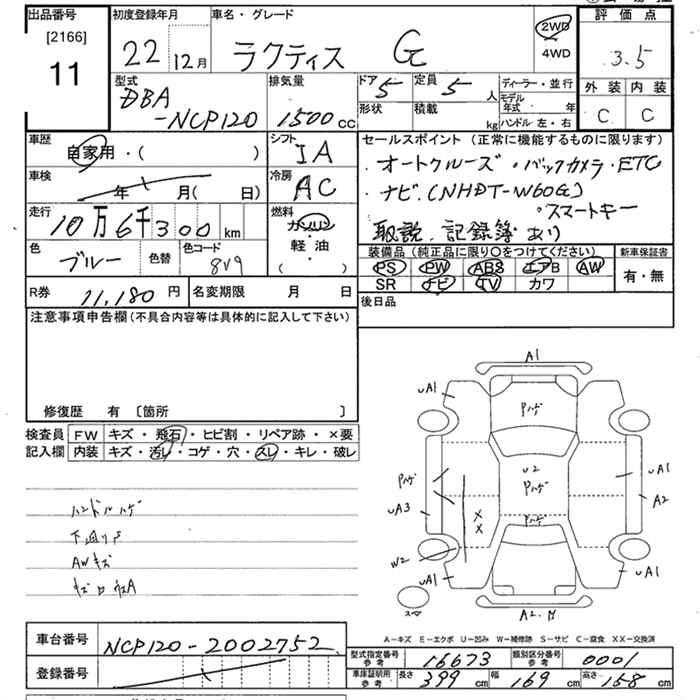 出品番号
[2166]
11
初度登録年月
22 12月
車名・グレード
ラクティス G
2WD
4WD
評価点
3.5
外装 内装
C C
型式
DBA
-NCP120
排気量
1500cc
ドア 5
定員 5人
形状
積載 kg
ディーラー・並行
モデル年式 年
ハンドル 左・右
車歴
自家用・( )
車検
年 月( 日)
走行
10万6千300km
色
ブルー
色替
色コード
8V9
シフト
IA
冷房
AC
燃料
ガソリン
軽・油
( )
セールスポイント (正常に機能するものに限ります)
・オートクルーズ・バックカメラ・ETC
・ナビ.(NHDT-W60G)
・スマートキー
取説.記録簿.あり
装備品(純正品に限り○をつけてください)
PS PW ABS エアB AW
SR ナビ TV カワ
新車保証書
有・無
R券 11,180円
名変期限 月 日
後日品
注意事項申告欄(不具合内容等は具体的に記入して下さい)
修復歴 有 〔箇所 〕
検査員
記入欄
FW キズ・飛石・ヒビ割・リペア跡・×要
内装 キズ・汚レ・コゲ・穴・スレ・キレ・破レ
ハンドルハゲ
下廻りS
AWキズ
A1
uA1
Pハゲ
U2
Pハゲ
Pハゲ
Pハゲ
uA1
A2
uA3
X
X
W2
uA1
uA1
スペア
A-キズ E-エクボ U-凹み W-補修跡 S-サビ C-腐食 XX-交換済
車台番号 NCP120-2002752
登録番号
型式指定番号
参考
16673
類別区分番号
参考
0001
車庫証明用
参考
長さ 399cm
幅 169cm
高さ 158cm